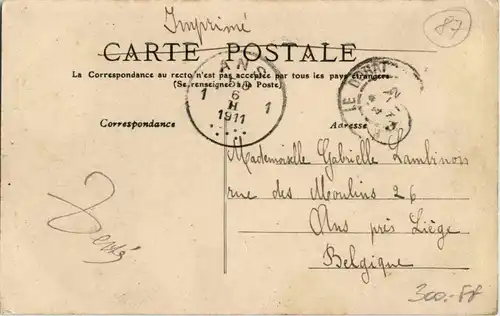 Imprimé
87
CARTE POSTALE
La Correspondance au recto n'est pas acceptée par tous les pays étrangers
(Se renseigner à la Poste)
ANS
6
1 1
H
1911
LE DORAT
Correspondance
Adresse
Mademoiselle Gabrielle Lambinon
rue des Moulins 26
Ans près Liège
Belgique
300.-FF